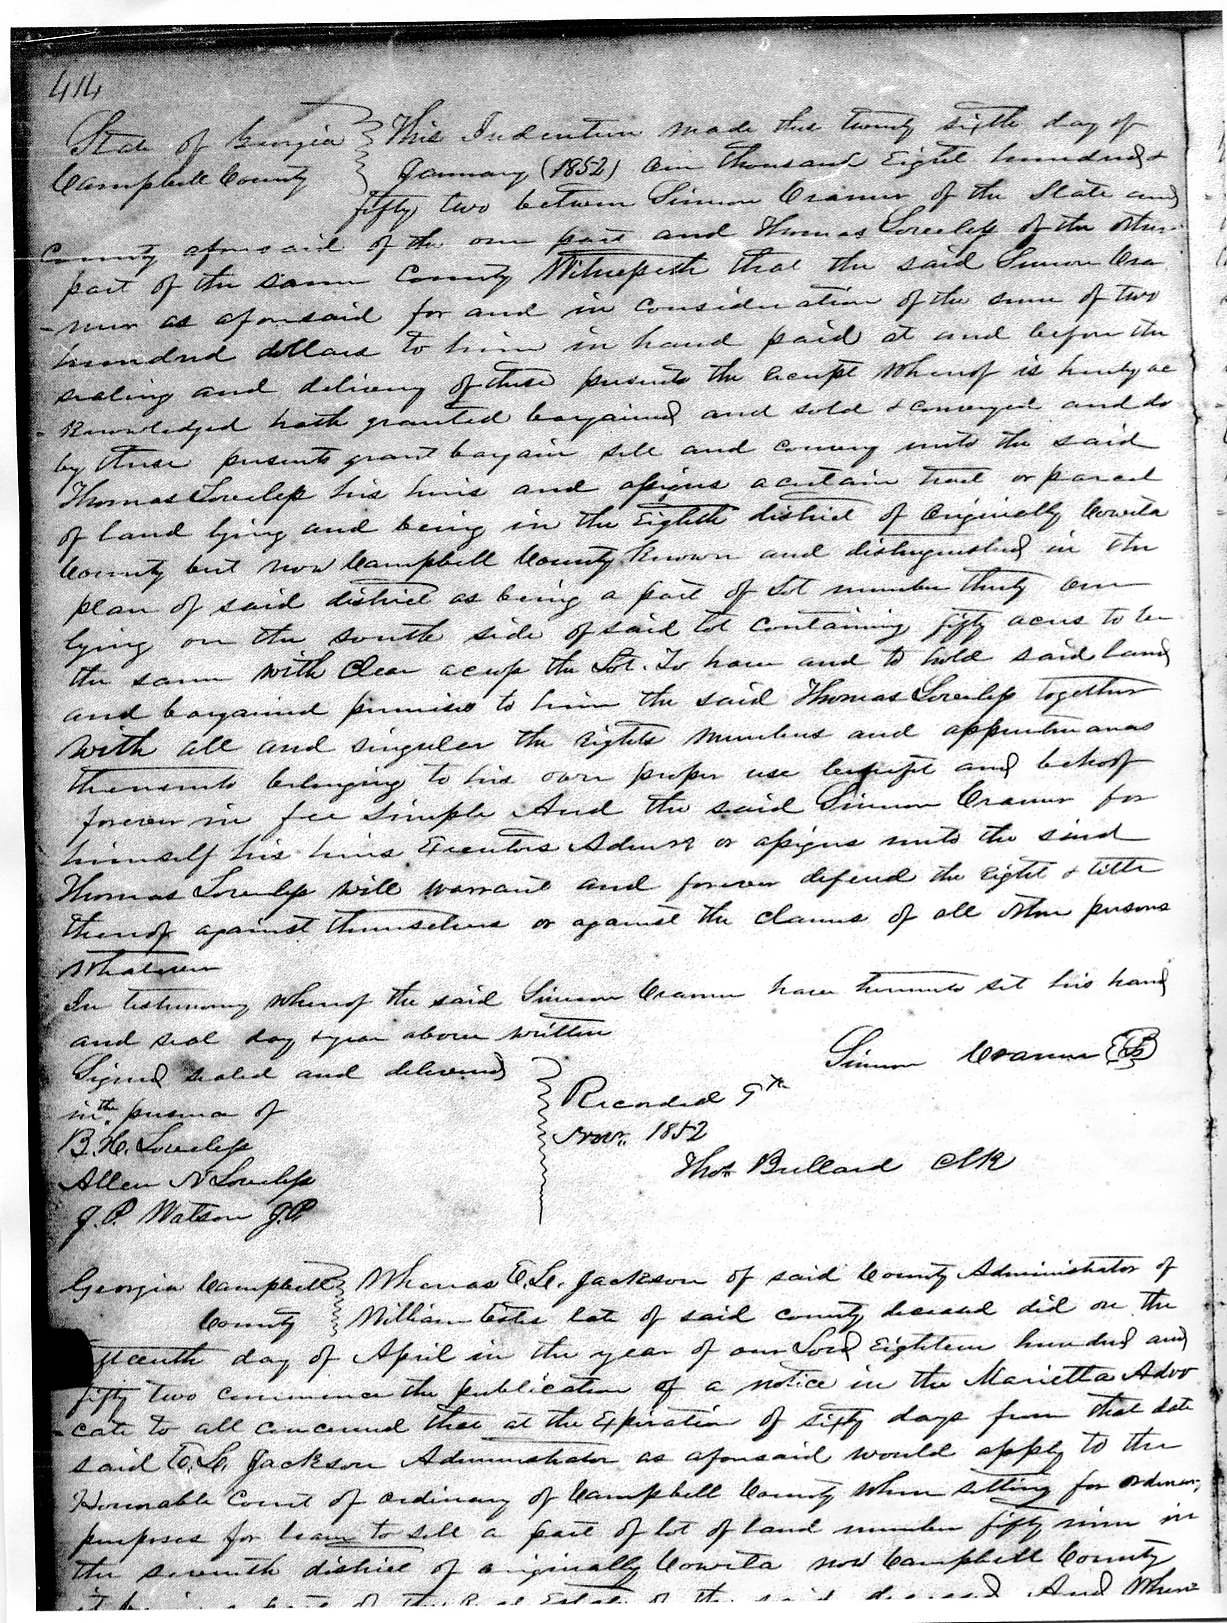 414
State of Georgia } This Indenture made this twenty sixth day of
Campbell County } January (1852) one thousand Eight hundred &
fifty two between Simeon Cramer of the State and
County aforesaid of the one part and Thomas Lovelep of the other
part of the same County Witnesseth that the said Simeon Cra
-mer as aforesaid for and in consideration of the sum of two
hundred dollars to him in hand paid at and before the
sealing and delivery of these presents the receipt whereof is hereby ac
-knowledged hath granted bargained and sold & conveyed and do
by these presents grant bargain sell and convey unto the said
Thomas Lovelep his heirs and assigns a certain tract or parcel
of land lying and being in the Eighth district of originally Coweta
County but now Campbell County known and distinguished in the
plan of said district as being a part of Lot number thirty one
lying on the south side of said lot containing fifty acres to be
the same with clear across the Lot. To have and to hold said land
and bargained premises to him the said Thomas Lovelep together
with all and singular the rights members and appurtenances
thereunto belonging to his own proper use benefit and behoof
forever in fee simple And the said Simeon Cramer for
himself his heirs Executors Admrs or assigns unto the said
Thomas Lovelep will warrant and forever defend the right & title
thereof against themselves or against the claims of all other persons
whatever
In testimony whereof the said Simeon Cramer have hereunto set his hand
and seal day & year above written
Simeon Cramer
Signed sealed and delivered
in the presence of
B. H. Lovelep
Allen N Lovelep
J. P. Watson J.P.
Recorded 9th
Nov. 1852
Thos Bullard Clk
Georgia Campbell } Whereas C. L. Jackson of said County Administrator of
County } William Estes late of said county deceased did on the
day of April in the year of our Lord Eighteen hundred and
fifty two commence the publication of a notice in the Marietta Advo
-cate to all concerned that at the Expiration of sixty days from that date
said C. L. Jackson Administrator as aforesaid would apply to the
Honorable Court of ordinary of Campbell County when sitting for ordinary
purposes for leave to sell a part of lot of land number fifty nine in
the seventh district of originally Coweta now Campbell County
it being a part of the Real Estate of the said deceased And Where